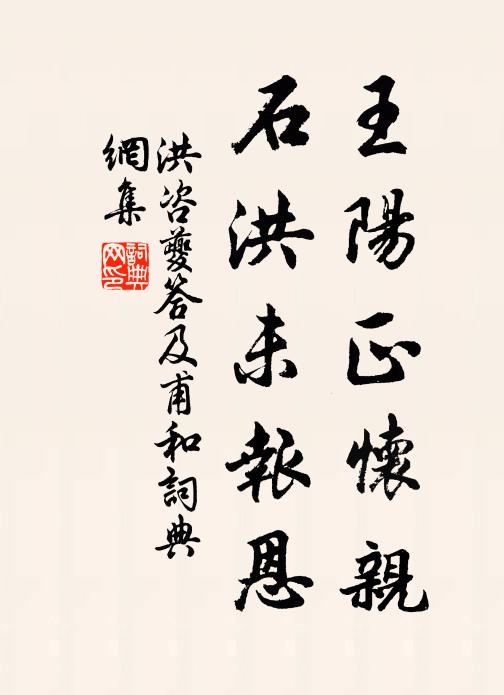 王陽正懷親
石洪未報恩
洪咨夔答及甫和詞典
網集
詞典
网印